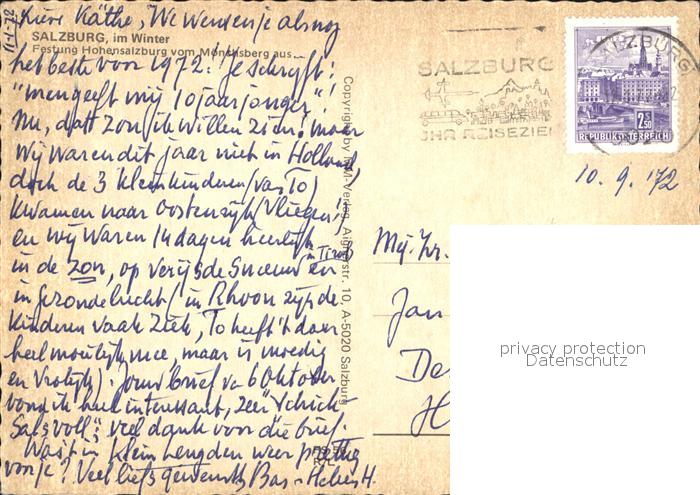 Lieve Käthe, We wensen je alsnog
SALZBURG, im Winter
Festung Hohensalzburg vom Mönchsberg aus
het beste voor 1972! Je schrijft:
"men geeft mij 10 jaar jonger"!
Nu, dat zou ik willen zien! maar
wij waren dit jaar niet in Holland,
doch de 3 kleinkinderen (van To)
kwamen naar Oostenrijk (vliegen!)
en wij waren 14 dagen heerlijk
in Tirol
in de zon, op verijsde sneeuw en
in gezonde lucht! in Rhoon zijn de
kinderen vaak ziek, To heeft 't daar
heel moeilijk mee, maar is moedig
en vrolijk). Jouw brief v. 6 Oktober
vond ik heel interessant, zeer "schick-
salsvoll": veel dank voor die brief.
Was 't in Klein Lengden weer prettig
voor je? Veel liefs gewenscht Bas - Helues H.
Copyright by MM-Verlag, Aignerstr. 10, A-5020 Salzburg
SALZBURG
IHR REISEZIEL
SALZBURG
2.50
REPUBLIK ÖSTERREICH
10. 9. '72
Mej. Fr.
Jan
De
H
privacy protection
Datenschutz